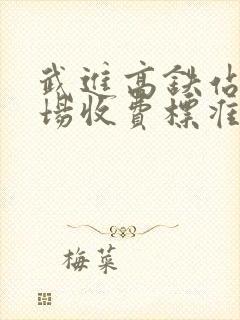 武進高鉄佔
場收費標准
梅菜